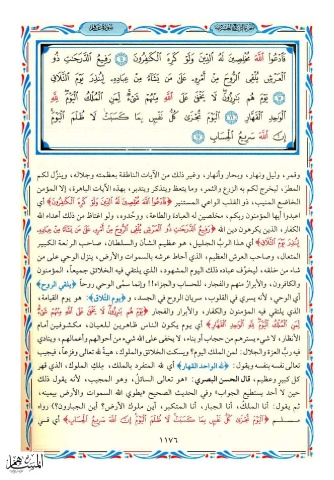 فَادْعُوا اللَّهَ مُخْلِصِينَ لَهُ الدِّينَ وَلَوْ كَرِهَ الْكَافِرُونَ ۝ رَفِيعُ الدَّرَجَاتِ ذُو
الْعَرْشِ يُلْقِي الرُّوحَ مِنْ أَمْرِهِ عَلَى مَن يَشَاءُ مِنْ عِبَادِهِ لِيُنذِرَ يَوْمَ التَّلَاقِ
۝ يَوْمَ هُم بَارِزُونَ لَا يَخْفَى عَلَى اللَّهِ مِنْهُمْ شَيْءٌ لِّمَنِ الْمُلْكُ الْيَوْمَ لِلَّهِ
الْوَاحِدِ الْقَهَّارِ ۝ الْيَوْمَ تُجْزَى كُلُّ نَفْسٍ بِمَا كَسَبَتْ لَا ظُلْمَ الْيَوْمَ
إِنَّ اللَّهَ سَرِيعُ الْحِسَابِ ۝
وقمر، وليل ونهار، وبحار وأنهار، وغير ذلك من الآيات الناطقة بعظمته وجلاله، وينزِّل لكم
المطرَ، ليخرج لكم به الزرع والثمر، وما يتعظ ويتذكر ويتدبر بهذه الآيات الباهرة، إلا المؤمن
الخاضع المنيب، ذو القلب الواعي المستنير ﴿فَادْعُوا اللَّهَ مُخْلِصِينَ لَهُ الدِّينَ وَلَوْ كَرِهَ الْكَافِرُونَ﴾ أي
اعبدوا أيها المؤمنون ربكم، مخلصين له العبادة والطاعة، وحِّدوه، ولو اغتاظ من ذلك أعداء الله
الكفار، الذين يكرهون دين الله ﴿رَفِيعُ الدَّرَجَاتِ ذُو الْعَرْشِ يُلْقِي الرُّوحَ مِنْ أَمْرِهِ عَلَى مَن يَشَاءُ مِنْ عِبَادِهِ
لِيُنذِرَ يَوْمَ التَّلَاقِ﴾ أي هذا الربُّ الجليل، هو عظيم الشأن والسلطان، صاحب الرفعة الكبير
المتعال، وصاحب العرش العظيم، الذي أحاط عرشه بالسموات والأرض، ينزل الوحي على من
شاء من خلقه، ليخوِّف عباده ذلك اليوم المشهود، الذي يلتقي فيه الخلائق جميعاً، المؤمنون
والكافرون، والأبرار منهم والفجار، للحساب والجزاء!! وإنما سمَّى الوحي روحاً ﴿يُلْقِي الرُّوحَ﴾
أي الوحي، لأنه يسري في القلوب، سريان الروح في الجسد، و﴿يَوْمَ التَّلَاقِ﴾: هو يوم القيامة،
الذي يلتقي فيه المؤمنون والكفار، والأبرار والفجار ﴿يَوْمَ هُم بَارِزُونَ لَا يَخْفَى عَلَى اللَّهِ مِنْهُمْ شَيْءٌ
لِّمَنِ الْمُلْكُ الْيَوْمَ لِلَّهِ الْوَاحِدِ الْقَهَّارِ﴾ أي يوم يكون الناس ظاهرين للعيان، مكشوفين أمام
الأنظار، لا شيء يسترهم من حجاب أو بناء، لا يخفى على الله شيء من أحوالهم وأعمالهم، وينادي
فيه ربُّ العزة والجلال: لمن الملك اليوم؟ ويسكت الخلائق والملوك، هيبةً لله تعالى وفزعاً، فيجيب
تعالى نفسه بنفسه ويقول: ﴿لِلَّهِ الْوَاحِدِ الْقَهَّارِ﴾ أي لله المتفرد بالملك، ملكِ الملوك، الذي قهر
كل كبير وعظيم، قال الحسن البصري: هو تعالى السائل، وهو المجيب، لأنه يقول ذلك
حين لا أحد يستطيع الجواب؟ وفي الحديث الصحيح «يطوي الله السموات والأرض بيمينه،
ثم يقول: أنا الملك، أنا الجبار، أنا المتكبر، أين ملوك الأرض؟ أين الجبارون؟» رواه
مسلم ﴿الْيَوْمَ تُجْزَى كُلُّ نَفْسٍ بِمَا كَسَبَتْ لَا ظُلْمَ الْيَوْمَ إِنَّ اللَّهَ سَرِيعُ الْحِسَابِ﴾ أي في
١١٧٦